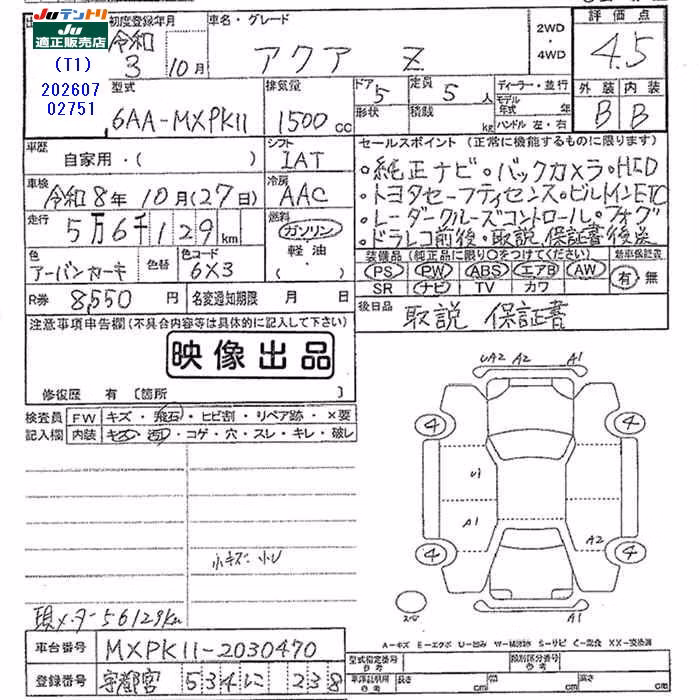 JU テントリ
JU 適正販売店
(T1)
202607
02751
初度登録年月
令和
3 10月
車名・グレード
アクア Z
2WD
・
4WD
評価点
4.5
型式
6AA-MXPK11
排気量
1500 cc
ドア 5
形状
定員 5 人
積載 kg
ディーラー・並行
モデル年式 年
ハンドル 左・右
外装 内装
B B
車歴
自家用・( )
シフト
IAT
セールスポイント (正常に機能するものに限ります)
・純正ナビ・バックカメラ・HID
・トヨタセーフティセンス・ビルトインETC
・レーダークルーズコントロール・フォグ
・ドラレコ前後・取説 保証書後送
車検
令和8年10月(27日)
冷房
AAC
走行
5万6千129km
燃料
ガソリン
軽油
・
色
アーバンカーキ
色替
色コード
6X3
装備品 (純正品に限り○をつけてください)
PS PW ABS エアB AW
SR ナビ TV カワ
新車保証書
有・無
R券 8,550 円
名変通知期限 月 日
後日品 取説 保証書
注意事項申告欄(不具合内容等は具体的に記入して下さい)
映像出品
修復歴 有 〔箇所 〕
検査員
記入欄
FW キズ・飛石・ヒビ割・リペア跡・×要
内装 キズ・汚れ・コゲ・穴・スレ・キレ・破レ
小キズ・小U
現メーター56129km
UA2 A2 A1
4 4
U1
A1
A2
4 4
A1
車台番号 MXPK11-2030470
登録番号 宇都宮 534 に 238
A-キズ E-エクボ U-凹み W-補修跡 S-サビ C-腐食 XX-交換済
型式指定番号 参考
類別区分番号 参考
車庫証明用 参考 長さ cm 幅 cm 高さ cm